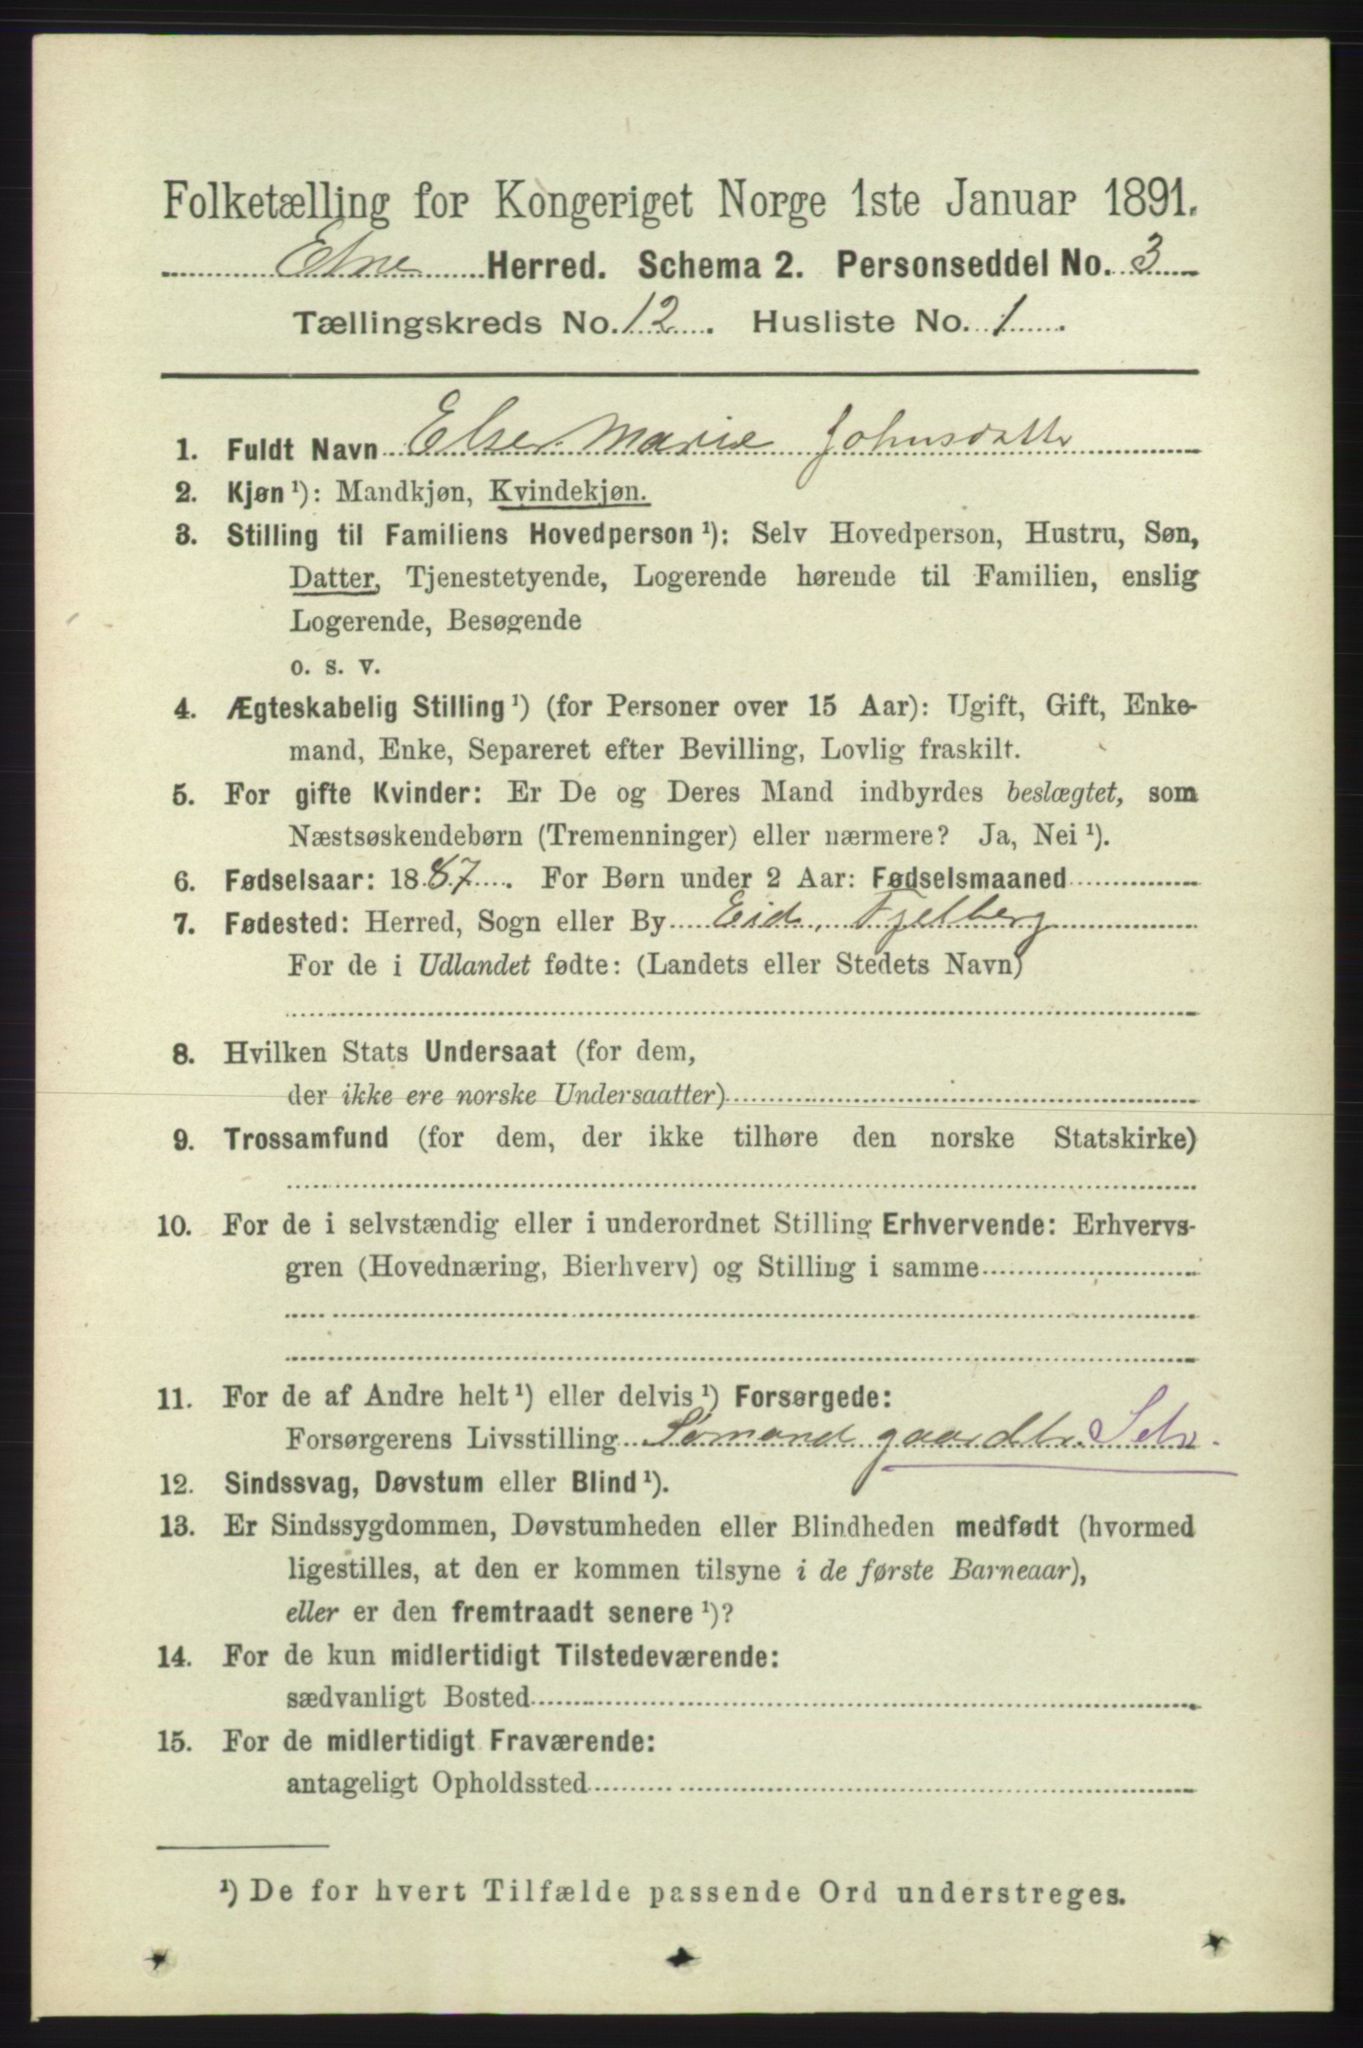 Folketælling for Kongeriget Norge 1ste Januar 1891.
Etne Herred. Schema 2. Personseddel No. 3
Tællingskreds No. 12. Husliste No. 1.
1. Fuldt Navn Else Marie Johnsdatter
2. Kjøn ¹): Mandkjøn, Kvindekjøn.
3. Stilling til Familiens Hovedperson ¹): Selv Hovedperson, Hustru, Søn,
Datter, Tjenestetyende, Logerende hørende til Familien, enslig
Logerende, Besøgende
o. s. v.
4. Ægteskabelig Stilling ¹) (for Personer over 15 Aar): Ugift, Gift, Enke-
mand, Enke, Separeret efter Bevilling, Lovlig fraskilt.
5. For gifte Kvinder: Er De og Deres Mand indbyrdes beslægtet, som
Næstsøskendebørn (Tremenninger) eller nærmere? Ja, Nei ¹).
6. Fødselsaar: 1887. For Børn under 2 Aar: Fødselsmaaned
7. Fødested: Herred, Sogn eller By Eid, Fjelberg
For de i Udlandet fødte: (Landets eller Stedets Navn)
8. Hvilken Stats Undersaat (for dem,
der ikke ere norske Undersaatter)
9. Trossamfund (for dem, der ikke tilhøre den norske Statskirke)
10. For de i selvstændig eller i underordnet Stilling Erhvervende: Erhvervs-
gren (Hovednæring, Bierhverv) og Stilling i samme
11. For de af Andre helt ¹) eller delvis ¹) Forsørgede:
Forsørgerens Livsstilling Sømand gaardbr. Selv.
12. Sindssvag, Døvstum eller Blind ¹).
13. Er Sindssygdommen, Døvstumheden eller Blindheden medfødt (hvormed
ligestilles, at den er kommen tilsyne i de første Barneaar),
eller er den fremtraadt senere ¹)?
14. For de kun midlertidigt Tilstedeværende:
sædvanligt Bosted
15. For de midlertidigt Fraværende:
antageligt Opholdssted
¹) De for hvert Tilfælde passende Ord understreges.